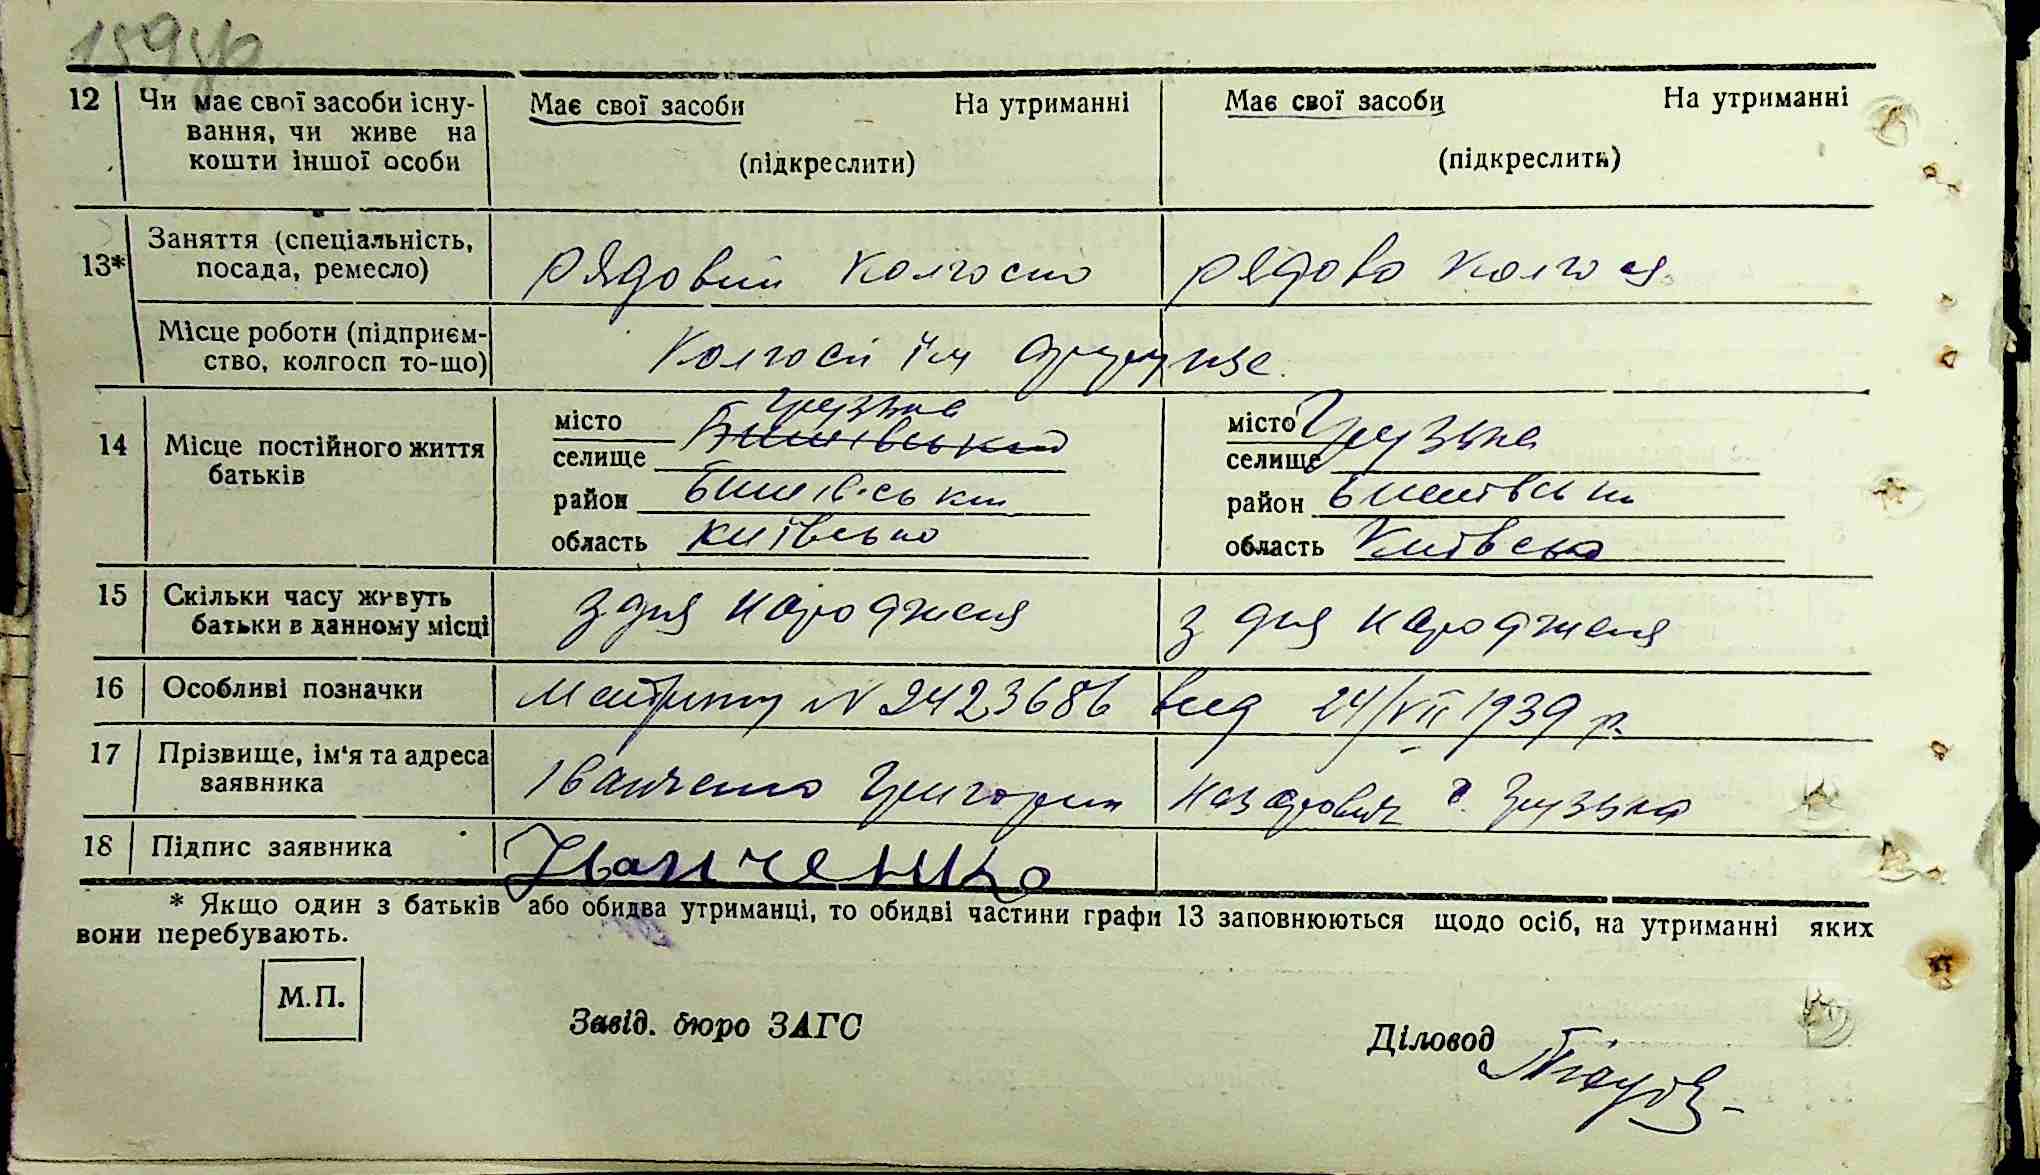 159
12 Чи має свої засоби існу- Має свої засоби На утриманні Має свої засоби На утриманні
вання, чи живе на
кошти іншої особи (підкреслити) (підкреслити)
Заняття (спеціальність,
13* посада, ремесло) рядовий колгосп рядова колгосп
Місце роботи (підприєм-
ство, колгосп то-що) Колгосп ім Фрунзе
Грузьке
місто Бишівський місто Грузька
14 Місце постійного життя селище селище
батьків район Бишівськи район Бишівськи
область Київсько область Київська
15 Скільки часу живуть з дня народженя з дня народженя
батьки в данному місці
16 Особливі позначки Метрику N 2423686 вид 24/VII 1939 р.
17 Прізвище, ім'я та адреса
заявника Іванченко Григорий Назарович с. Грузька
18 Підпис заявника Іванченко
* Якщо один з батьків або обидва утриманці, то обидві частини графи 13 заповнюються щодо осіб, на утриманні яких
вони перебувають.
М.П.
Завід. бюро ЗАГС Діловод